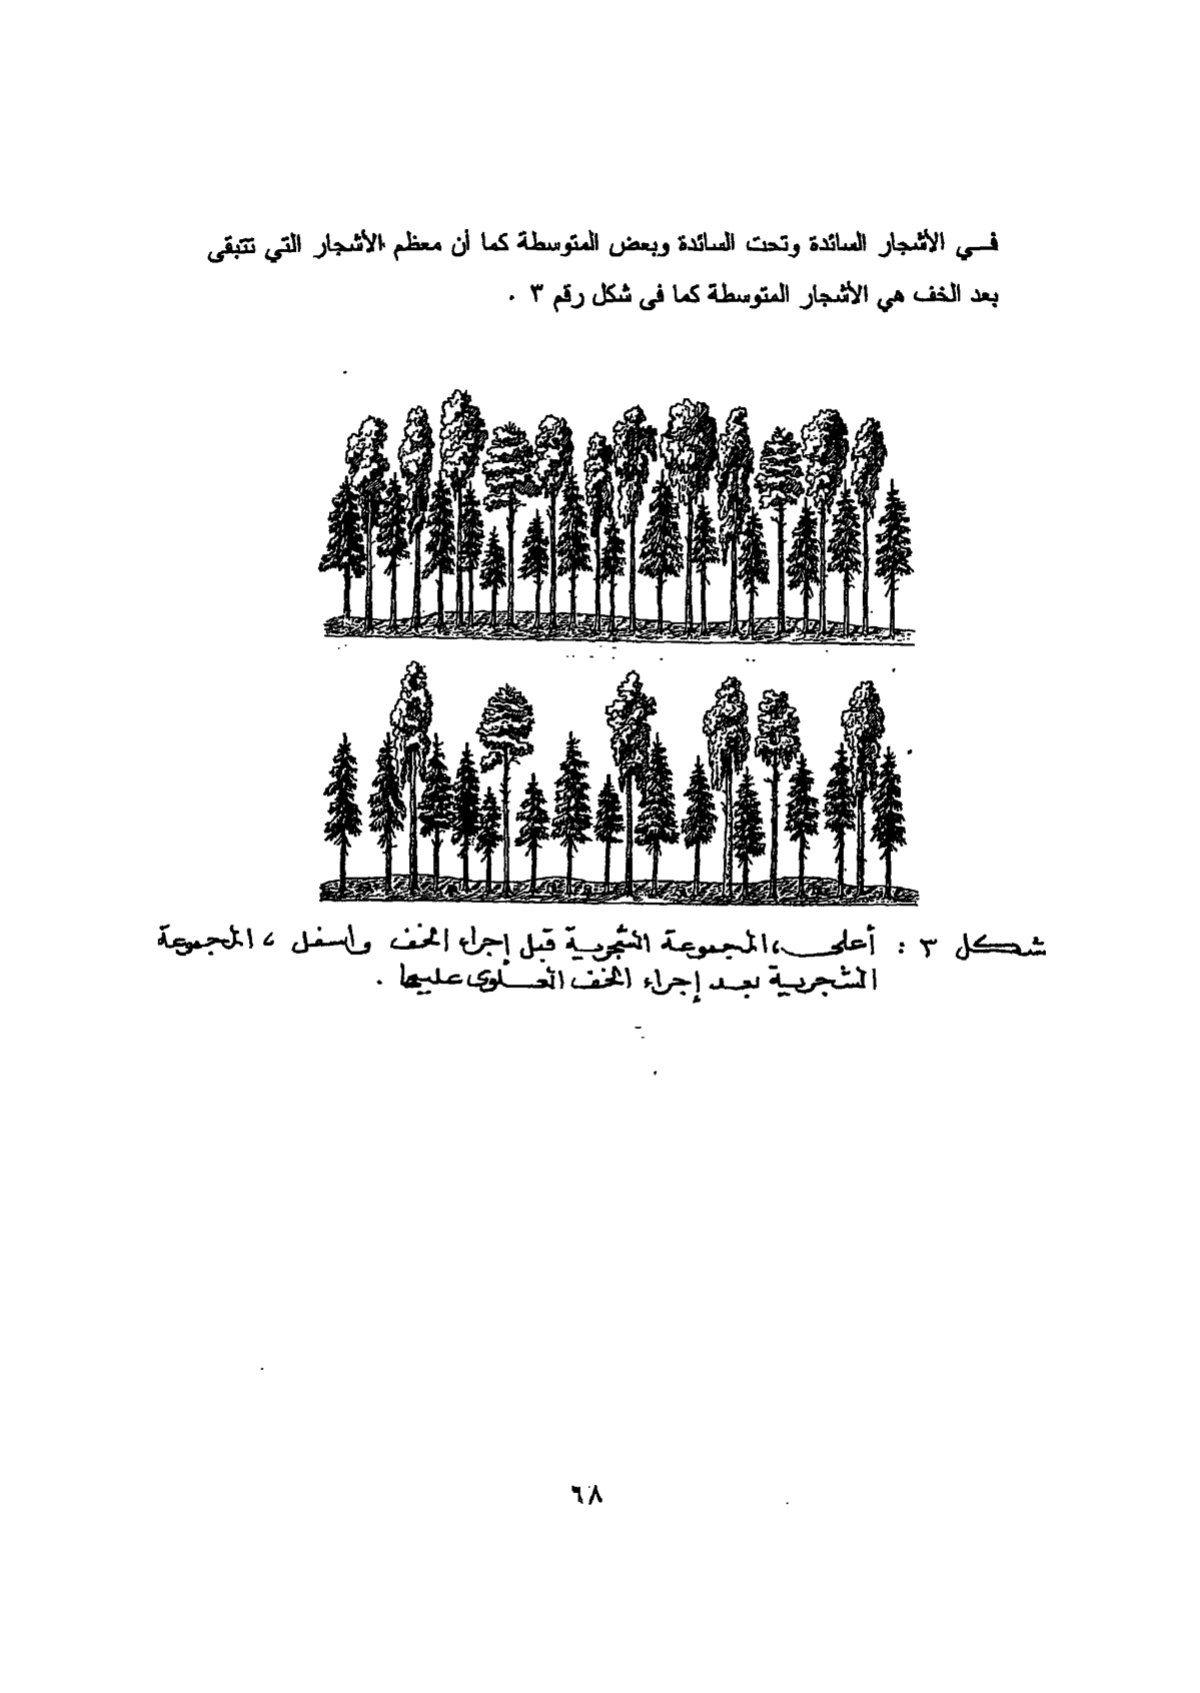 فـــي الأشجار السائدة وتحت السائدة وبعض المتوسطة كما أن معظم الأشجار التي تتبقى
بعد الخف هي الأشجار المتوسطة كما فى شكل رقم ٣ .
شكل ٣ : أعلى ، المجموعة الشجرية قبل إجراء الخف وأسفل ، المجموعة
الشجرية بعد إجراء الخف العلوى عليها .
٦٨